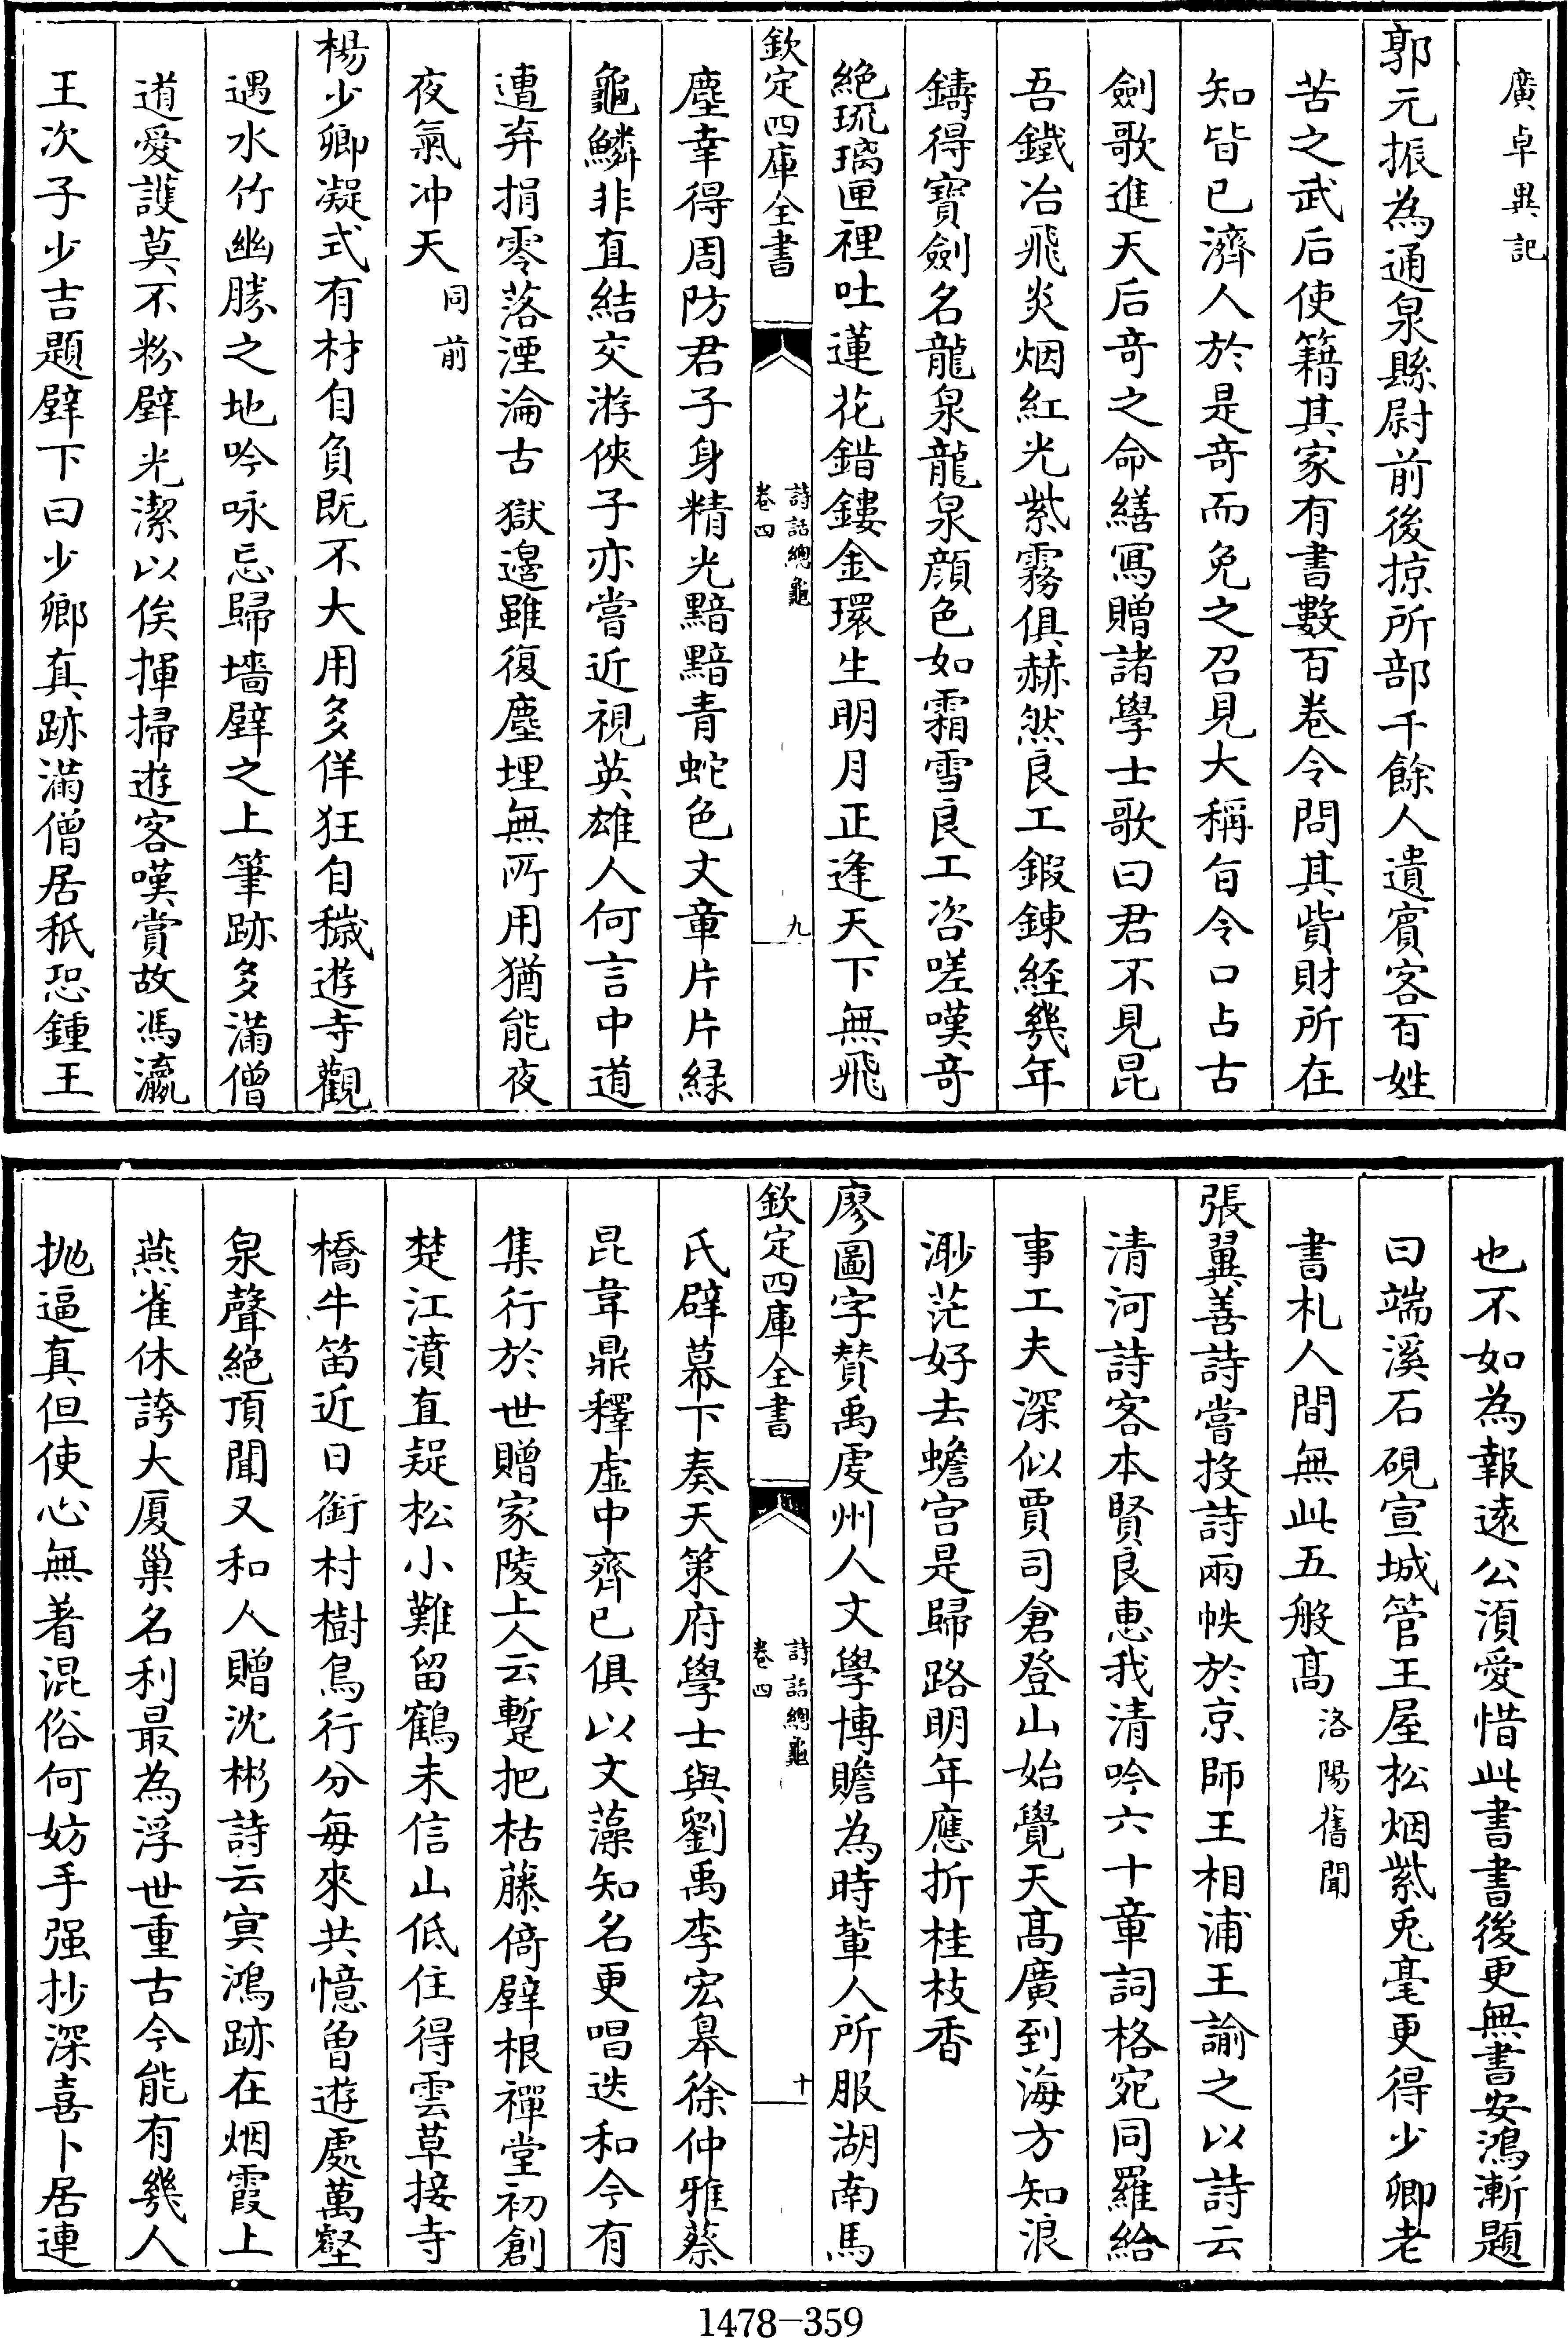 廣卓異記
郭元振為通泉縣尉前後掠所部千餘人遺賓客百姓
苦之武后使籍其家有書數百卷令問其貲財所在
知皆已濟人於是奇而免之召見大稱旨令口占古
劍歌進天后奇之命繕寫贈諸學士歌曰君不見昆
吾鐵冶飛炎烟紅光紫霧俱赫然良工鍜鍊經幾年
鑄得寶劍名龍泉龍泉顔色如霜雪良工咨嗟嘆奇
絶琉璃匣裡吐蓮花錯鏤金環生明月正逢天下無飛
欽定四庫全書
詩話總龜
卷四
九
塵幸得周防君子身精光黯黯青蛇色文章片片緑
龜鱗非直結交游俠子亦嘗近視英雄人何言中道
遭弃捐零落湮淪古獄邉雖復塵埋無所用猶能夜
夜氣冲天同前
楊少卿凝式有材自負既不大用多佯狂自穢遊寺觀
遇水竹幽勝之地吟咏忘歸墻壁之上筆跡多滿僧
道愛護莫不粉壁光潔以俟揮掃遊客嘆賞故馮瀛
王次子少吉題壁下曰少卿真跡滿僧居秖恐鍾王
也不如為報遠公湏愛惜此書書後更無書安鴻漸題
曰端溪石硯宣城管王屋松烟紫兎毫更得少卿老
書札人間無此五般髙洛陽舊聞
張翼善詩嘗投詩兩帙於京師王相浦王諭之以詩云
清河詩客本賢良恵我清吟六十章詞格宛同羅給
事工夫深似賈司倉登山始覺天髙廣到海方知浪
渺茫好去蟾宫是歸路明年應折桂枝香
廖圖字賛禹虔州人文學博贍為時輩人所服湖南馬
欽定四庫全書
詩話總龜
卷四
十
氏辟幕下奏天策府學士與劉禹李宏臯徐仲雅蔡
昆韋鼎釋虚中齊已俱以文藻知名更唱迭和今有
集行於世贈家陵上人云蹔把枯藤倚壁根禪堂初創
楚江濆直疑松小難留鶴未信山低住得雲草接寺
橋牛笛近日銜村樹鳥行分每來共憶曽遊處萬壑
泉聲絶頂聞又和人贈沈彬詩云冥鴻跡在烟霞上
燕雀休誇大厦巢名利最為浮世重古今能有幾人
抛逼真但使心無着混俗何妨手强抄深喜卜居連
1478-359